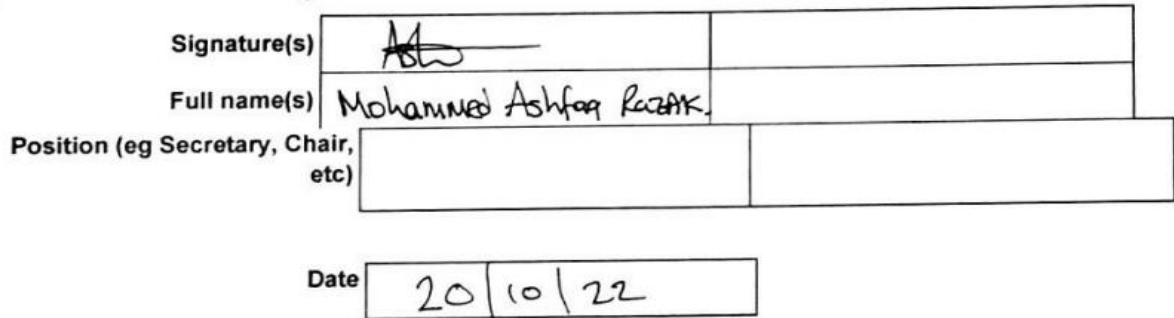 Signature(s)
Full name(s) Mohammed Ashfaq Razak.
Position (eg Secretary, Chair,
etc)
Date 20/10/22